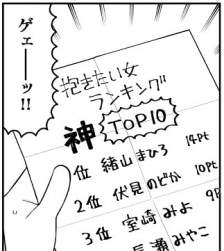 ゲェーーッ!!
抱きたい女
ランキング
神 TOP10
位 緒山まひろ 14Pt
2位 伏見のどか 10Pt
3位 室崎みよ 9P
長瀬みやこ